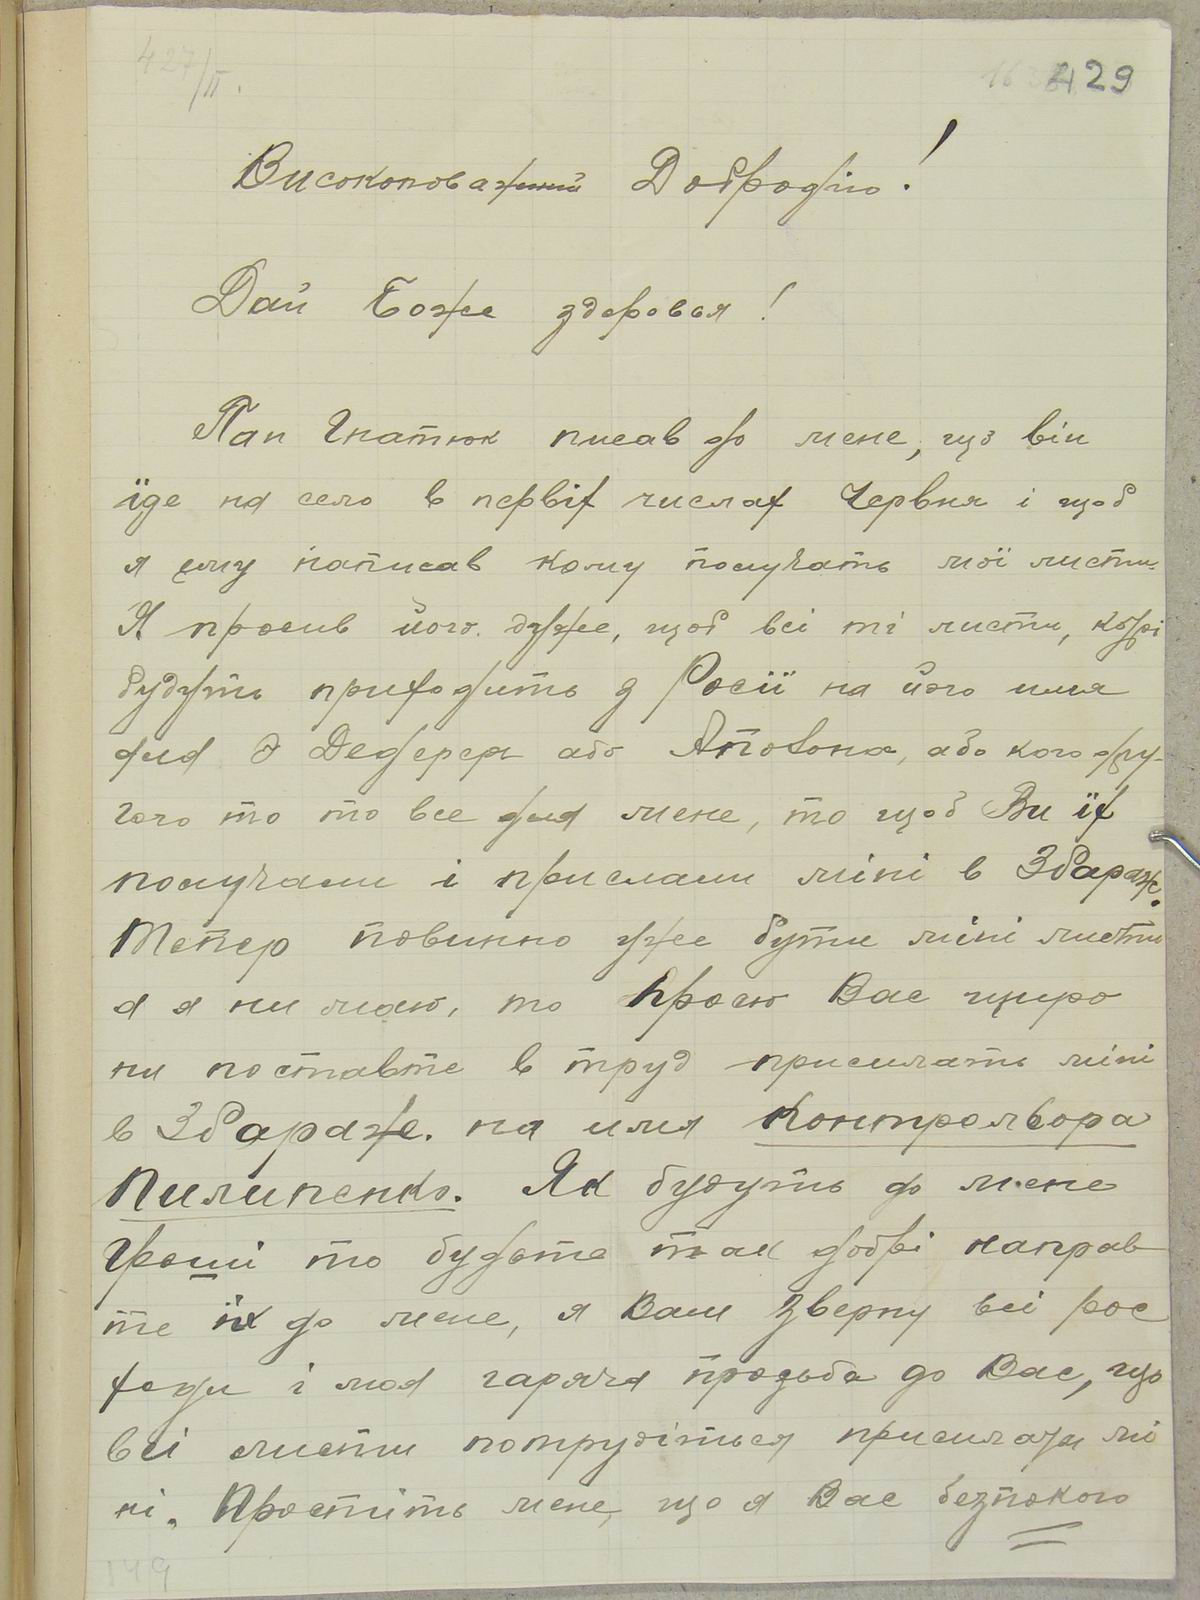 427/II.
429
Високоповажний Добродію!
Дай Боже здоровья!
Пан Гнатюк писав до мене, що він
їде на село в первіх числах Червня і щоб
я ёму написав кому получать мої листи.
Я просив його дуже, щоб всі ті листи, котрі
будуть приходить з Росії на його имя
для Ф Дедерея або Антовона, або кого дру-
гого то то все для мене, то щоб Ви їх
получали і прислали міні в Збараж.
Тепер повинно уже бути міні листи
а я ни маю, то прошу Вас щиро
ни поставте в труд присилать міні
в Збараже. на имя Контрольора
Пилипенко. Як будуть до мене
Гроші то будьте так добрі направ
те їх до мене, я Вам зверну всі рос
ходи і моя гаряча прозьба до Вас, що
всі листи потрудіться присилати мі
ні. Простіть мене, що я Вас безпокою
149